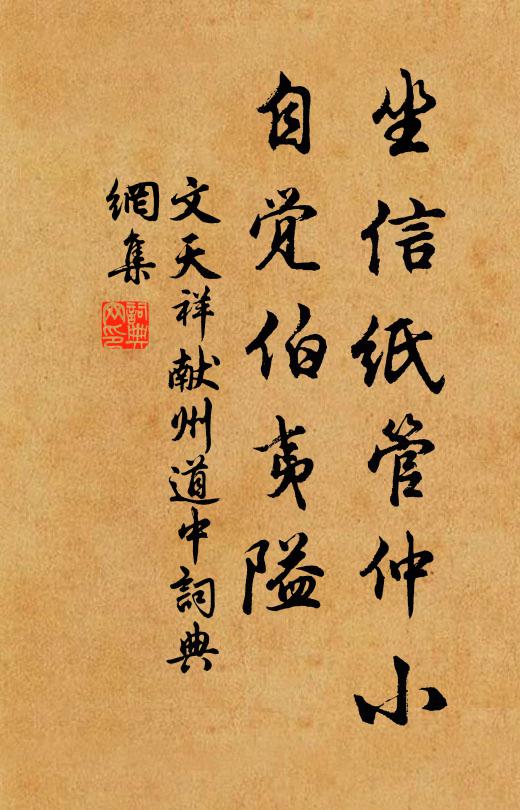 坐信纸管仲小
自觉伯夷隘
文天祥献州道中詞典
網集
詞典